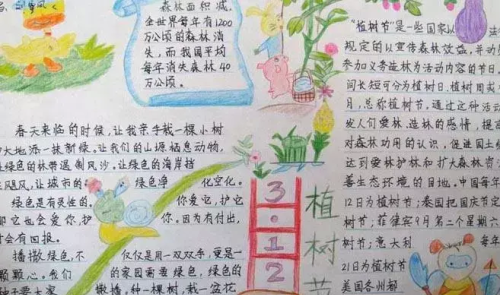 森林面积减
全世界每年有1200
万公顷的森林消
失，而我国平均
每年消失森林40
万公顷。
春天来临的时候，让我亲手栽一棵小树
大地添一抹新绿，让我们的山塬栖息动物，
绿色的林带遏制风沙，让绿色的海岸挡
飓风，让城市的绿色净化空气。
绿色是有灵性的。你爱它，护它
它也会爱你，护你。因为有付出，
会有回报。
播撒绿色，不仅仅是用一双双手，更是一
颗颗心。我们的家园需要绿色，绿色的
要大家播撒，种一棵树，栽一盆花
3.12
植树节
"植树节"是一些国家以
规定的以宣传森林效益，并动
参加义务造林为活动内容的节日
间长短可分为植树日，植树周或
月，总称植树节。通过这种活
发人们爱林、造林的感情，提
对森林功用的认识，促进国土
达到爱林护林和扩大森林资
善生态环境的目地。中国每年
12日为植树节；泰国把国庆节定
树节；菲律宾9月第二个星期六
树节；意大利每年
21日为植树节
美国各州都